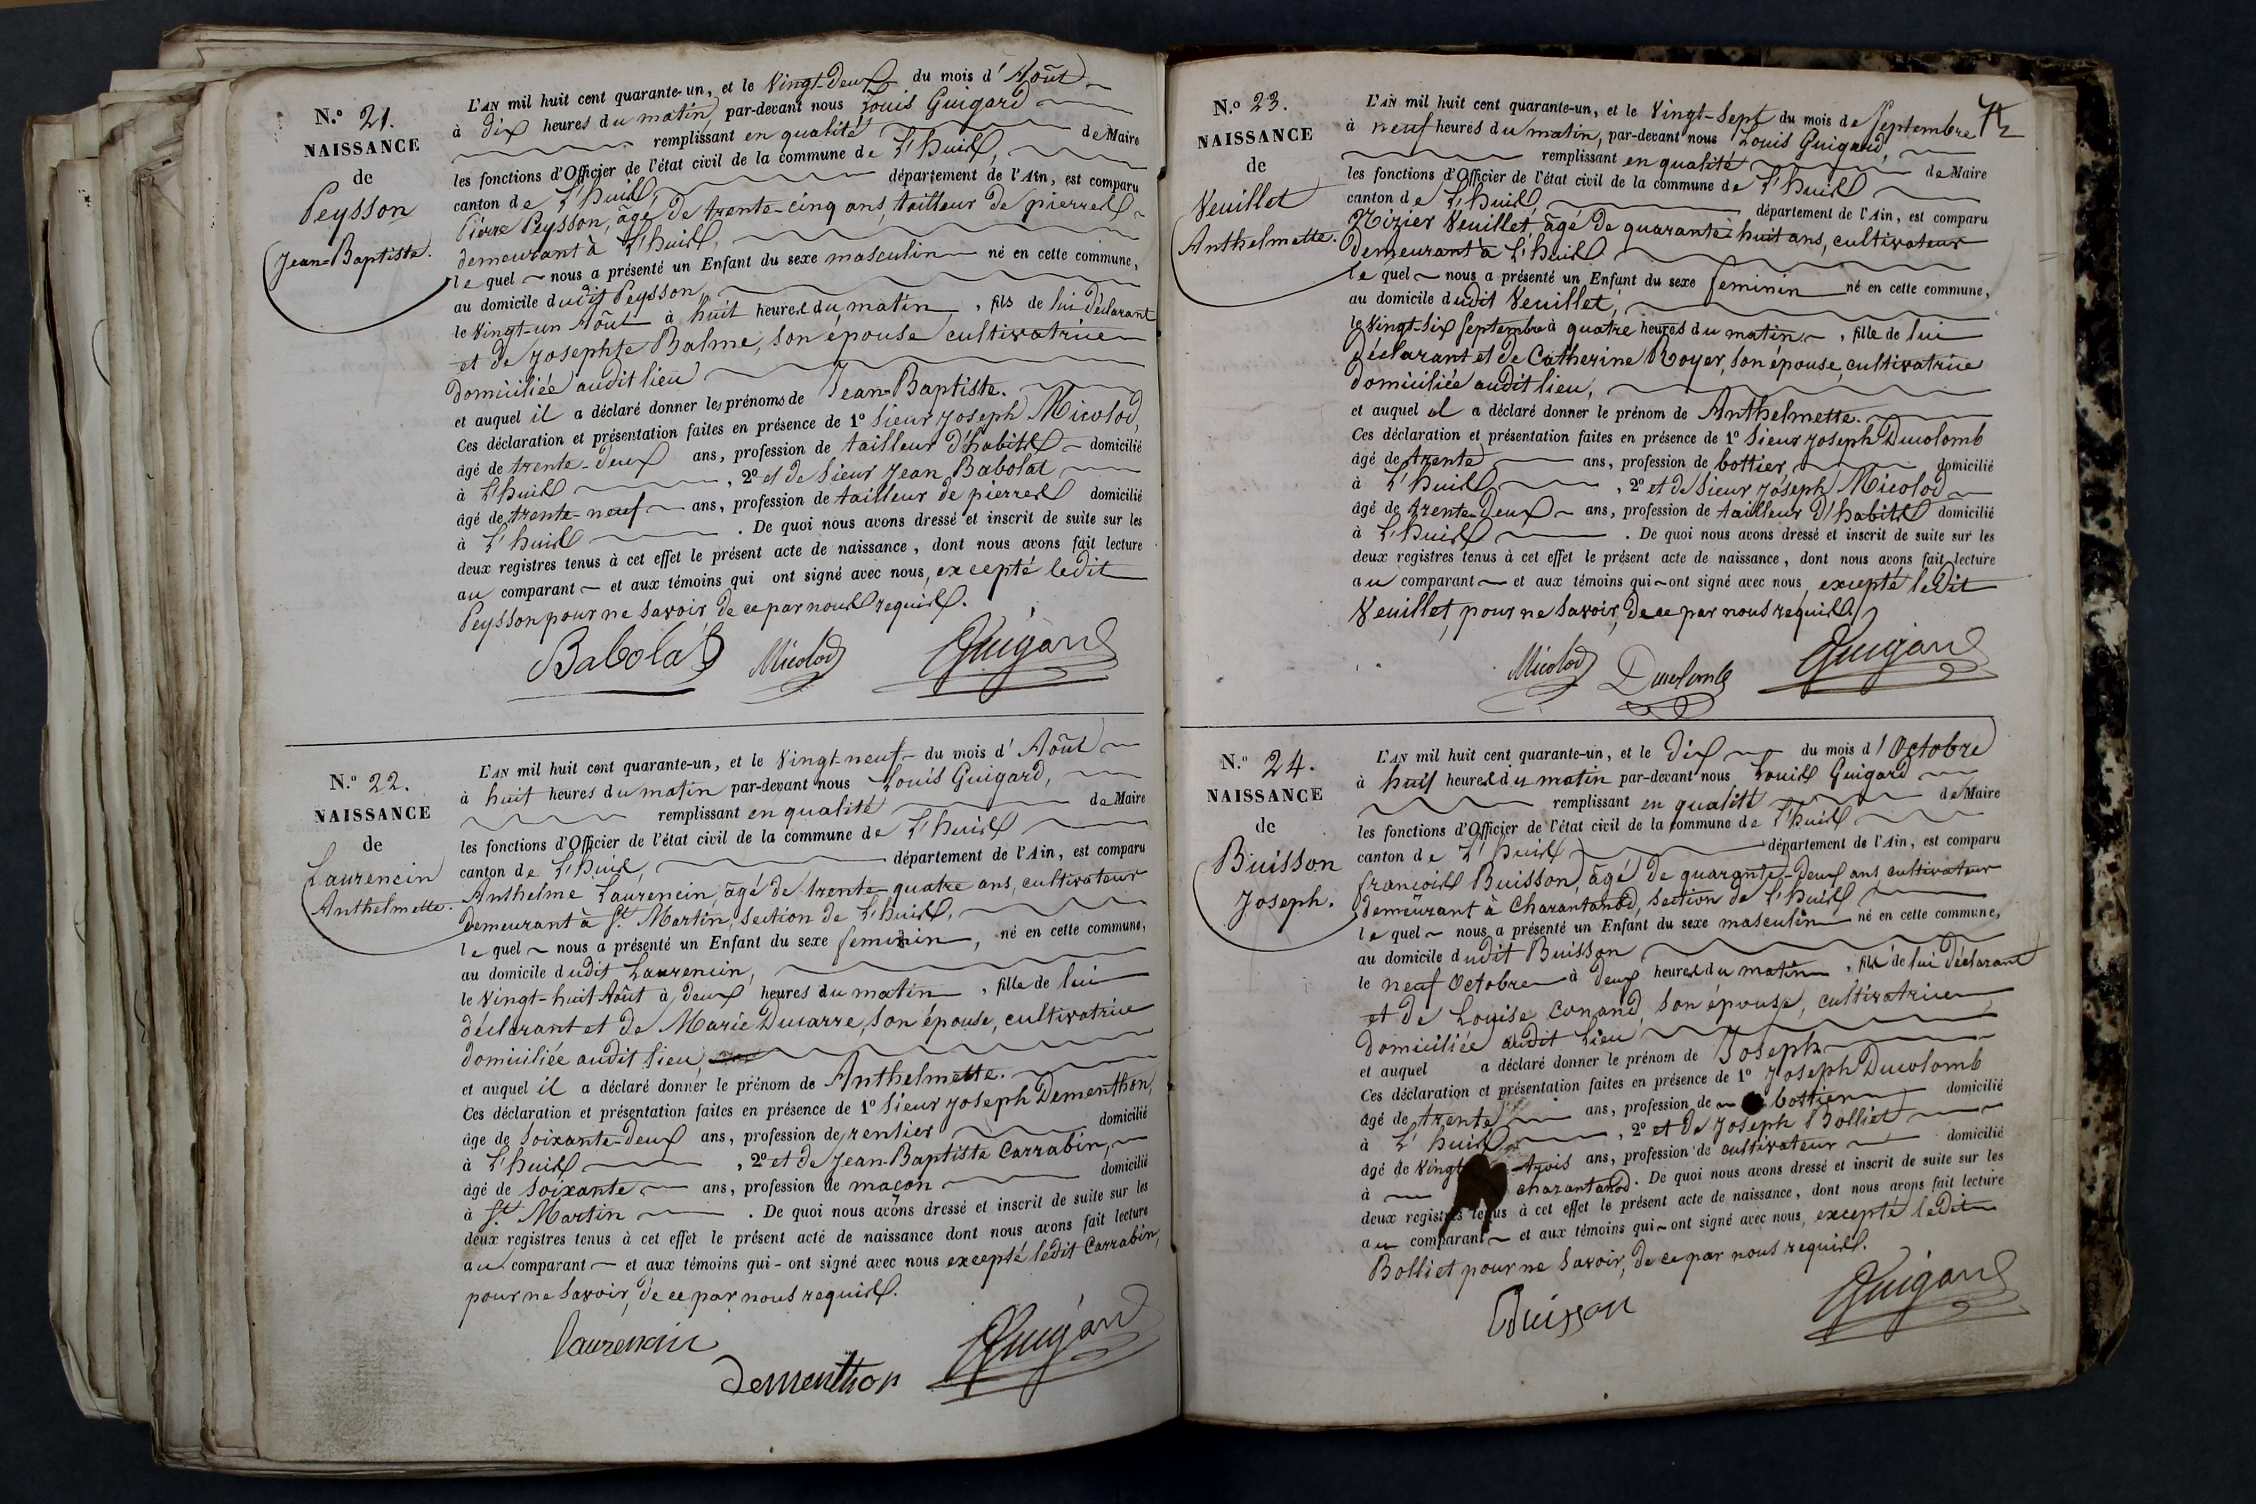 N.º 21.
NAISSANCE
de
Peysson
Jean-Baptiste.
L'AN mil huit cent quarante-un, et le Vingt-Deux du mois d'Août
à dix heures du matin, par-devant nous Louis Guigard
remplissant en qualité de Maire
les fonctions d'Officier de l'état civil de la commune de L'huis,
canton de L'huis, département de l'Ain, est comparu
Pierre Peysson, âgé de trente-cinq ans, tailleur de pierres
demeurant à L'huis,
lequel nous a présenté un Enfant du sexe masculin né en cette commune,
au domicile dudit Peysson,
le Vingt-un Août à huit heures du matin, fils de lui déclarant
et de Josephte Balme, son épouse cultivatrice
domiciliée audit lieu
et auquel il a déclaré donner les prénoms de Jean-Baptiste.
Ces déclaration et présentation faites en présence de 1º Sieur Joseph Micolod,
âgé de trente-deux ans, profession de tailleur d'habits domicilié
à L'huis, 2º et de Sieur Jean Babolat
âgé de trente-neuf ans, profession de tailleur de pierres domicilié
à L'huis. De quoi nous avons dressé et inscrit de suite sur les
deux registres tenus à cet effet le présent acte de naissance, dont nous avons fait lecture
au comparant et aux témoins qui ont signé avec nous, excepté ledit
Peysson pour ne savoir, de ce par nous requis.
Babolat Micolod Guigard
N.º 22.
NAISSANCE
de
Laurencin
Anthelmette.
L'AN mil huit cent quarante-un, et le Vingt-neuf du mois d'Août
à huit heures du matin par-devant nous Louis Guigard,
remplissant en qualité de Maire
les fonctions d'Officier de l'état civil de la commune de L'huis
canton de L'huis, département de l'Ain, est comparu
Anthelme Laurencin, âgé de trente-quatre ans, cultivateur
demeurant à St. Martin, section de L'huis,
lequel nous a présenté un Enfant du sexe feminin, né en cette commune,
au domicile dudit Laurencin,
le Vingt-huit Août à deux heures du matin, fille de lui
déclarant et de Marie Ducarre, son épouse, cultivatrice
domiciliée audit lieu,
et auquel il a déclaré donner le prénom de Anthelmette.
Ces déclaration et présentation faites en présence de 1º Sieur Joseph Dementhon,
âge de soixante-deux ans, profession de rentier domicilié
à L'huis, 2º et de Jean-Baptiste Carrabin,
âgé de soixante ans, profession de maçon domicilié
à St. Martin. De quoi nous avons dressé et inscrit de suite sur les
deux registres tenus à cet effet le présent acte de naissance dont nous avons fait lecture
au comparant et aux témoins qui - ont signé avec nous excepté ledit Carrabin,
pour ne savoir, de ce par nous requis.
Laurencin
Dementhon Guigard
N.º 23.
NAISSANCE
de
Veuillet
Anthelmette.
L'AN mil huit cent quarante-un, et le Vingt-Sept du mois de Septembre
à neuf heures du matin, par-devant nous Louis Guigard,
remplissant en qualité de Maire
les fonctions d'Officier de l'état civil de la commune de L'huis
canton de L'huis, département de l'Ain, est comparu
Nizier Veuillet, âgé de quarante-huit ans, cultivateur
demeurant à L'huis
lequel nous a présenté un Enfant du sexe feminin né en cette commune,
au domicile dudit Veuillet,
le Vingt-six septembre à quatre heures du matin, fille de lui
déclarant et de Catherine Royer, son épouse, cultivatrice
domiciliée audit lieu,
et auquel il a déclaré donner le prénom de Anthelmette.
Ces déclaration et présentation faites en présence de 1º Sieur Joseph Ducolomb
âgé de trente ans, profession de bottier, domicilié
à L'huis, 2º et de Sieur Joseph Micolod
âgé de trente-deux ans, profession de tailleur d'habits domicilié
à L'huis. De quoi nous avons dressé et inscrit de suite sur les
deux registres tenus à cet effet le présent acte de naissance, dont nous avons fait lecture
au comparant et aux témoins qui ont signé avec nous, excepté ledit
Veuillet, pour ne savoir, de ce par nous requis.
Micolod Ducolomb Guigard
N.º 24.
NAISSANCE
de
Buisson
Joseph.
L'AN mil huit cent quarante-un, et le dix du mois d'Octobre
à huit heures du matin par-devant nous Louis Guigard
remplissant en qualité de Maire
les fonctions d'Officier de l'état civil de la commune de L'huis
canton de L'huis département de l'Ain, est comparu
françois Buisson, âgé de quarante-deux ans cultivateur
demeurant à Charantanod, section de L'huis
lequel nous a présenté un Enfant du sexe masculin né en cette commune,
au domicile dudit Buisson
le neuf Octobre à deux heures du matin, fils de lui déclarant
et de Louise Conand, son épouse, cultivatrice
domiciliée audit lieu
et auquel a déclaré donner le prénom de Joseph
Ces déclaration et présentation faites en présence de 1º Joseph Ducolomb
âgé de trente ans, profession de bottier domicilié
à L'huis, 2º et de Joseph Bolliet
âgé de vingt-trois ans, profession de cultivateur domicilié
à charantanod. De quoi nous avons dressé et inscrit de suite sur les
deux registres tenus à cet effet le présent acte de naissance, dont nous avons fait lecture
au comparant et aux témoins qui ont signé avec nous, excepté ledit
Bolliet pour ne savoir, de ce par nous requis.
Buisson Guigard